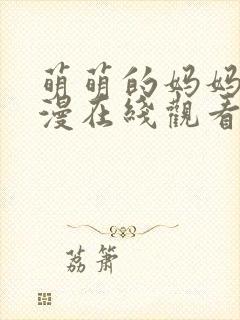 萌萌的妈妈
漫在线觀看
荔箫